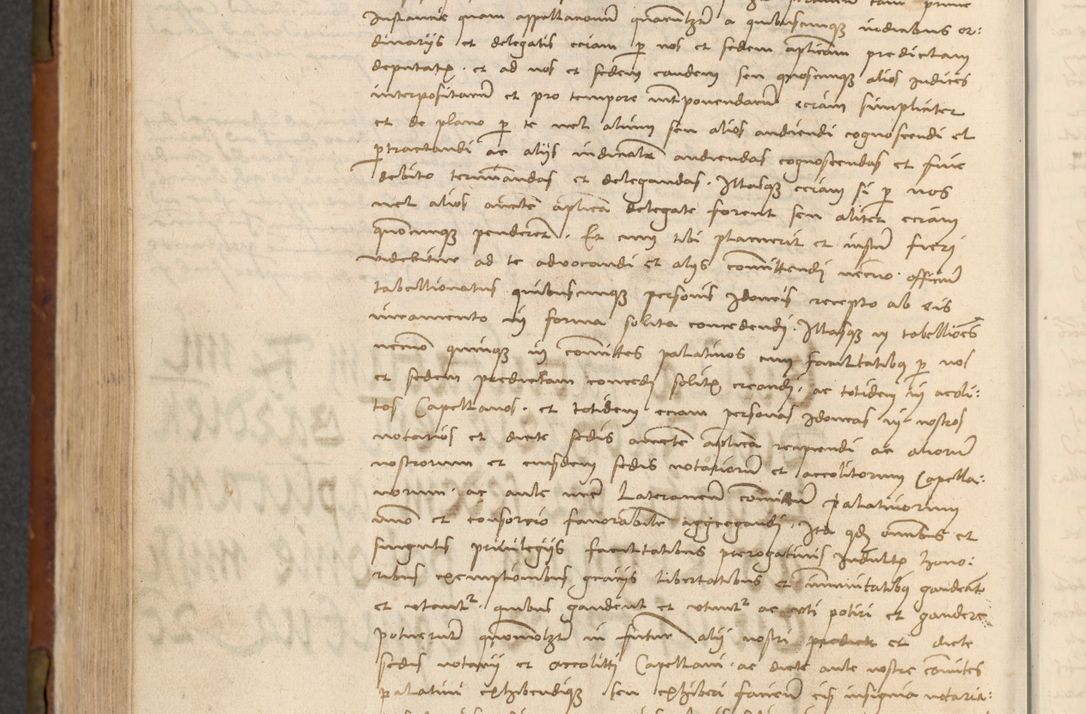 Instancie quam appellationum quarumcunque a quibuscunque iudicibus or:
dinarijs et delegatis eciam p nos et sedem aplicam predictam
deputatis . et ad nos et sedem eandem seu quoscunque alios Iudices
interpositarum et pro tempore interponendarum eciam simpliciter
et de plano p te vel alium seu alios audiendi cognoscendi et
ptractandi ac alijs iudicialiter audiendas cognoscendas et fine
debito terminandas et delegandas . Illasque eciam si p nos
vel alios aucte aplica delegate forent seu aliter eciam
quocunque penderent . Et cum tibi placuerit et iustum fieri
videbitur ad te advocandi et alijs committendi necnon officium
tabellionatus quibuscunque personis Idoneis recepto ab eis
iuramento in forma solita concedendi . Illasque in tabelliones
necnon quinque in comites palatinos cum facultatibus p nos
et sedem predictam concedi solitis creandi . ac totidem in acoli:
tos Capellanos . et totidem eciam personas Idoneas in nostros
notarios et dicte sedis aucte aplica recipiendi ac aliorum
nostrorum et eiusdem sedis notariorum et accolitorum Capella:
norum . ac aule nre Lateranen comitum palatinorum
numero et consorcio favorabiliter aggregandi . Ita qd omnibus et
singulis privilegijs facultatibus prerogativis Indultis hono:
ribus exemptionibus gracijs libertatibus et immunitatibus gaudeant
et utantur quibus gaudent et utuntur ac uti potiri et gaudere
potuerunt quomolibet in futurum alij nostri predicte et dicte
sedis notarij et accoliti Capellani . ac dicte aule nostre comites
palatini exhibendique seu exhiberi faciendi eis insignia notaria: